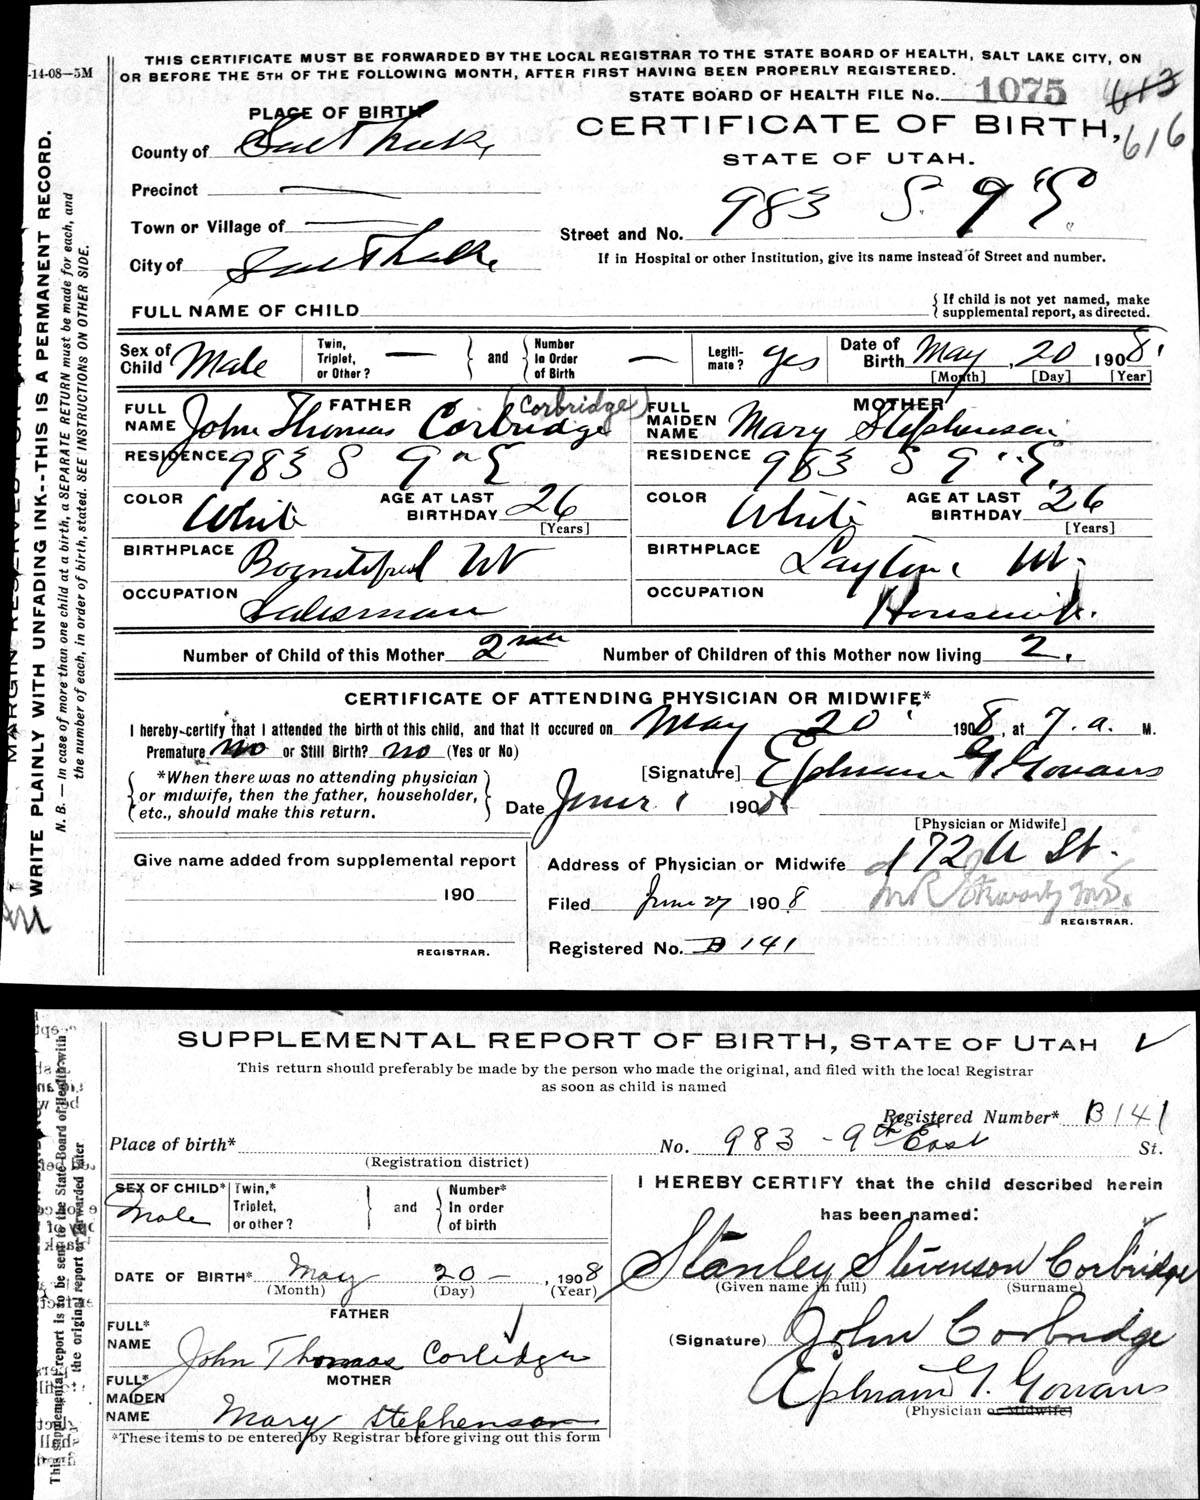 -14-08—5M
THIS CERTIFICATE MUST BE FORWARDED BY THE LOCAL REGISTRAR TO THE STATE BOARD OF HEALTH, SALT LAKE CITY, ON
OR BEFORE THE 5TH OF THE FOLLOWING MONTH, AFTER FIRST HAVING BEEN PROPERLY REGISTERED.
STATE BOARD OF HEALTH FILE No. 1075 613
616
PLACE OF BIRTH
CERTIFICATE OF BIRTH,
STATE OF UTAH.
County of Salt Lake
Precinct —
Town or Village of —
City of Salt Lake
Street and No. 983 S 9 " E
If in Hospital or other Institution, give its name instead of Street and number.
FULL NAME OF CHILD
{ If child is not yet named, make
supplemental report, as directed.
Sex of Child Male
Twin, Triplet, or Other? — and Number In Order of Birth —
Legitimate? yes
Date of Birth May, 20 1908
[Month] [Day] [Year]
FATHER
FULL NAME John Thomas Corbridge (Corbridge)
RESIDENCE 983 S 9th E
COLOR White AGE AT LAST BIRTHDAY 26
[Years]
BIRTHPLACE Bountiful Ut
OCCUPATION Salesman
MOTHER
FULL MAIDEN NAME Mary Stephenson
RESIDENCE 983 S 9 " E
COLOR White AGE AT LAST BIRTHDAY 26
[Years]
BIRTHPLACE Layton Ut.
OCCUPATION Housewife.
Number of Child of this Mother 2nd Number of Children of this Mother now living 2.
CERTIFICATE OF ATTENDING PHYSICIAN OR MIDWIFE*
I hereby certify that I attended the birth of this child, and that it occured on May 20 1908, at 7. a. M.
Premature no or Still Birth? no (Yes or No)
[Signature] Ephraim G. Gowans
*When there was no attending physician
or midwife, then the father, householder,
etc., should make this return.
Date June 1 1908
[Physician or Midwife]
Give name added from supplemental report
190
REGISTRAR.
Address of Physician or Midwife 172 A St.
Filed June 27 1908
REGISTRAR.
Registered No. B 141
MARGIN RESERVED FOR BINDING
WRITE PLAINLY WITH UNFADING INK--THIS IS A PERMANENT RECORD.
N. B. — In case of more than one child at a birth, a SEPARATE RETURN must be made for each, and
the number of each, in order of birth, stated. SEE INSTRUCTIONS ON OTHER SIDE.
SUPPLEMENTAL REPORT OF BIRTH, STATE OF UTAH
This return should preferably be made by the person who made the original, and filed with the local Registrar
as soon as child is named
Registered Number* B 141
Place of birth* No. 983 - 9th East St.
(Registration district)
SEX OF CHILD* Male
Twin,* Triplet, or other? and Number* In order of birth
DATE OF BIRTH* May 20 — , 1908
(Month) (Day) (Year)
FATHER
FULL* NAME John Thomas Corbidge
MOTHER
FULL* MAIDEN NAME Mary Stephenson
*These items to be entered by Registrar before giving out this form
I HEREBY CERTIFY that the child described herein
has been named:
Stanley Stevenson Corbridge
(Given name in full) (Surname)
(Signature) John Corbridge
Ephraim G. Gowans
(Physician or Midwife)
This supplemental report is to be sent to the State Board of Health with
the original report or forwarded later